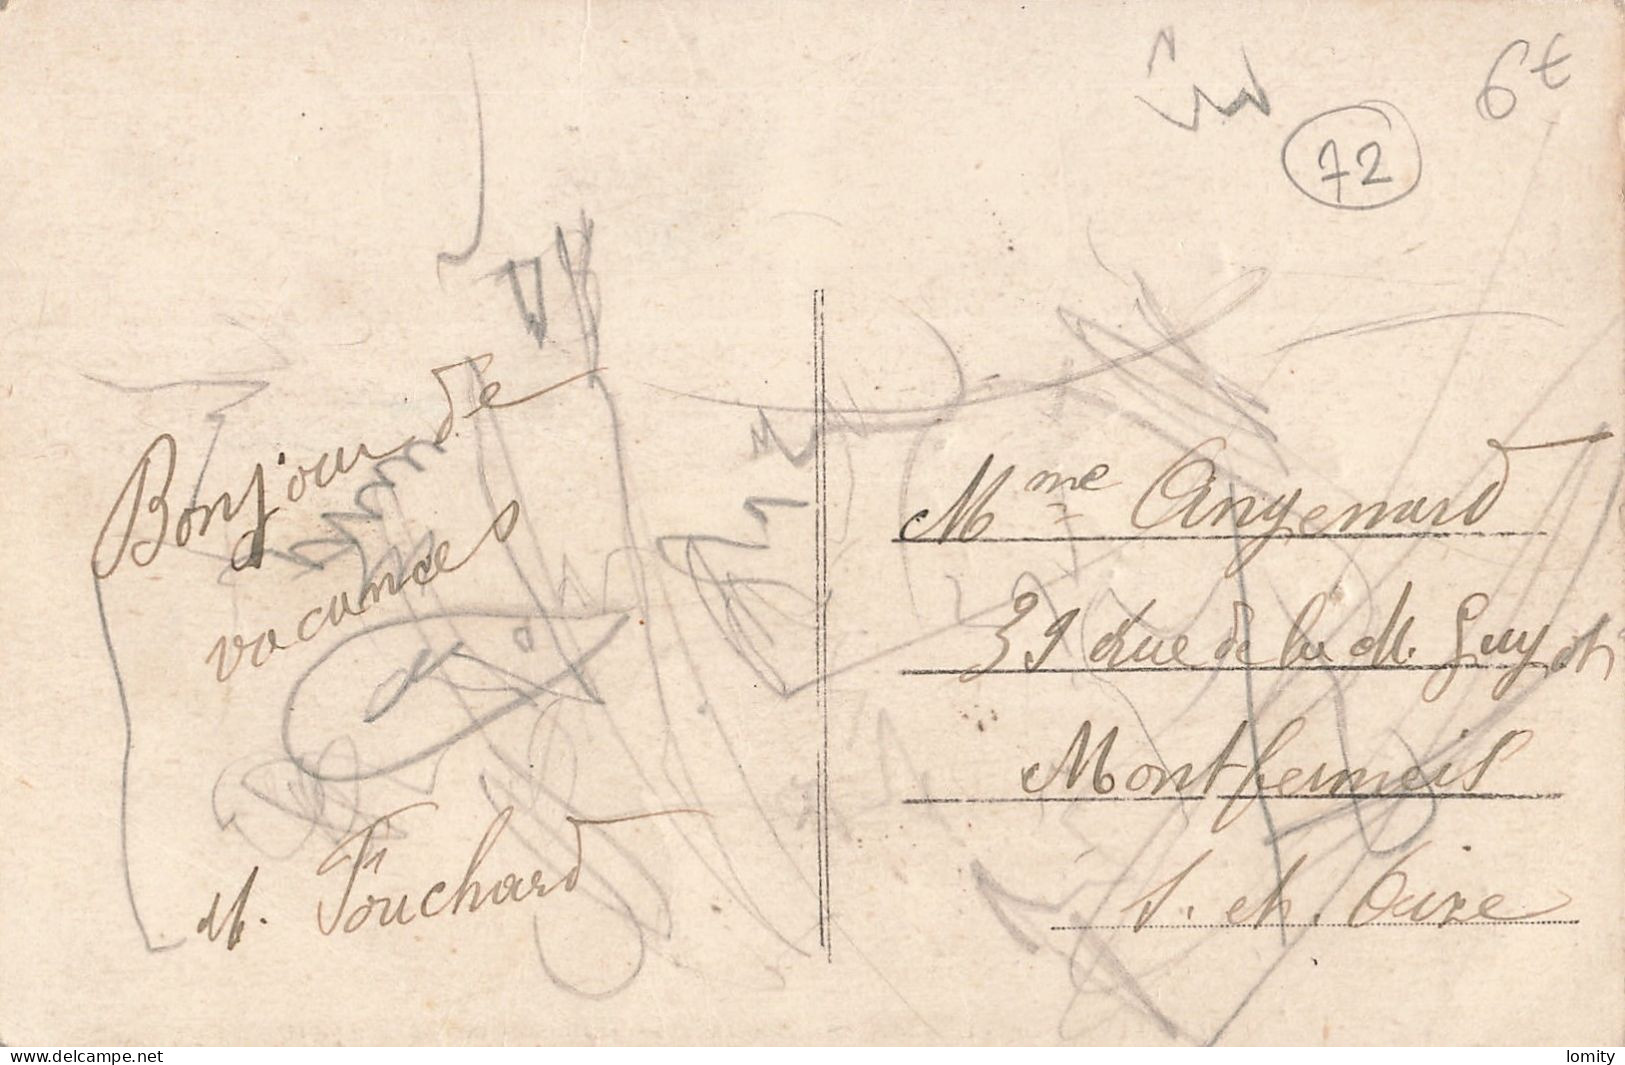 6€
72
Bonjour de
vacances
M. Fouchard
Mme Angenard
39 Rue de la M. Guyot
Montfermeil
S. et. Oize
www.delcampe.net
lomity